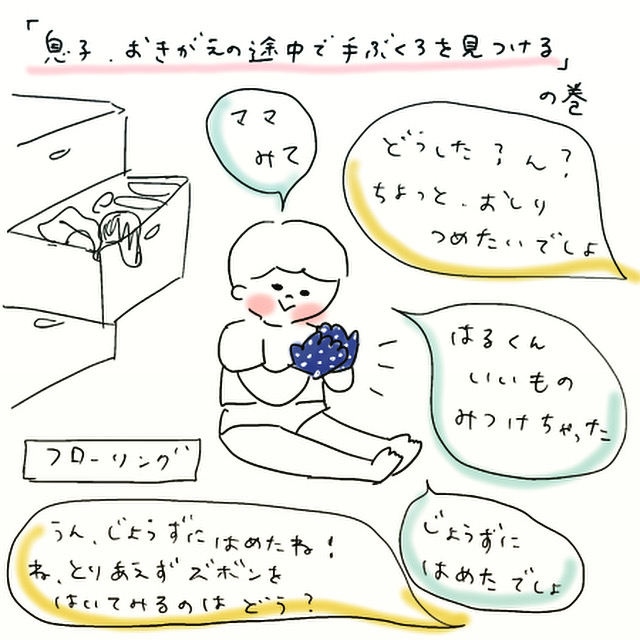 「息子.おきがえの途中で手ぶくろを見つける」
の巻
ママ
みて
どうした?ん?
ちょっと.おしり
つめたいでしょ
はるくん
いいもの
みつけちゃった
フローリング
じょうずに
はめたでしょ
うん、じょうずにはめたね!
ね、とりあえずズボンを
はいてみるのはどう?